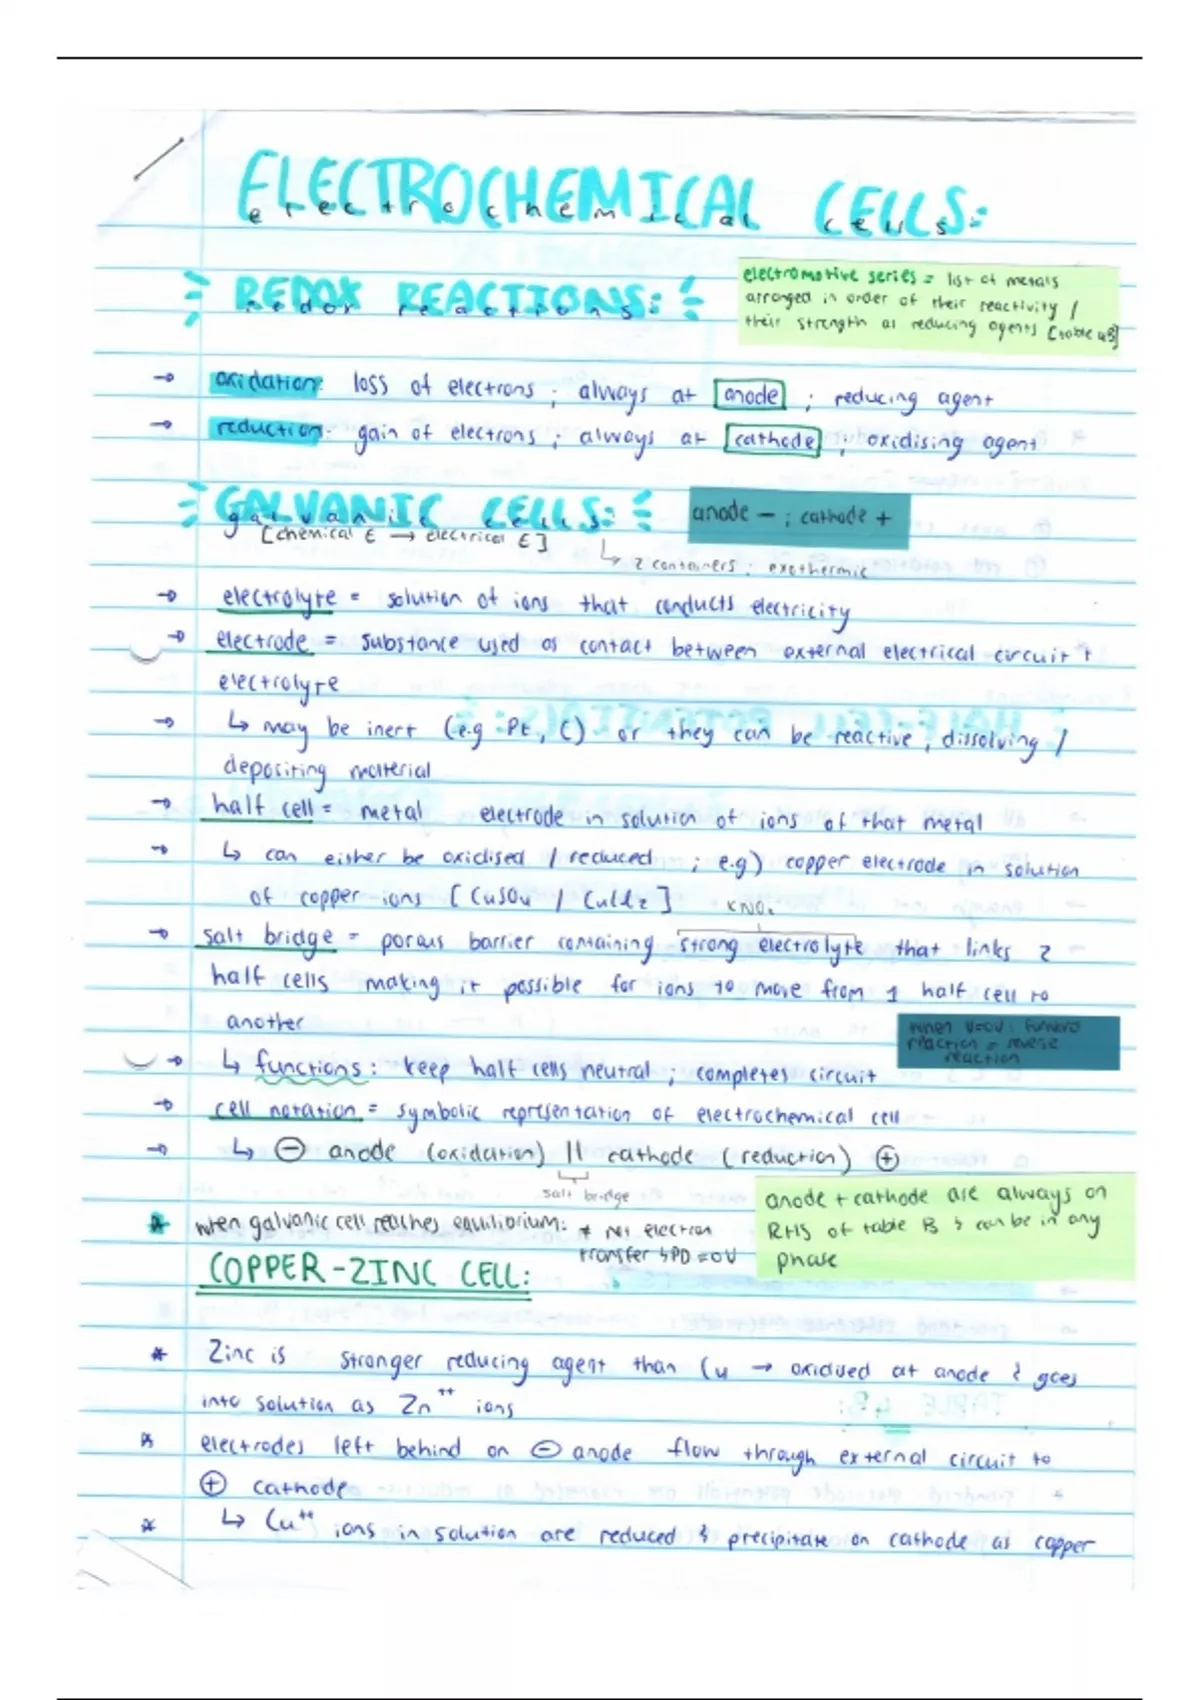 ELECTROCHEMICAL CELLS:
electrochemical cells
REDOX REACTIONS:
redox reactions
electromotive series = list of metals
arranged in order of their reactivity /
their strength as reducing agents [table 4B]
→ oxidation: loss of electrons ; always at anode ; reducing agent
→ reduction: gain of electrons ; always at cathode ; oxidising agent
GALVANIC CELLS:
galvanic cells
anode - ; cathode +
[chemical E → electrical E]
↳ 2 containers ; exothermic
→ electrolyte = solution of ions that conducts electricity
→ electrode = substance used as contact between external electrical circuit +
electrolyte
→ ↳ may be inert (e.g Pt, C) or they can be reactive, dissolving /
depositing material
→ half cell = metal electrode in solution of ions of that metal
→ ↳ can either be oxidised / reduced ; e.g) copper electrode in solution
of copper ions [CuSO4 / CuCl2]
KNO3
→ salt bridge = porous barrier containing strong electrolyte that links 2
half cells making it possible for ions to move from 1 half cell to
another
when V=0V: forward
reaction = reverse
reaction
→ ↳ functions: keep half cells neutral ; completes circuit
→ cell notation = symbolic representation of electrochemical cell
→ ↳ ⊖ anode (oxidation) || cathode (reduction) ⊕
salt bridge
anode + cathode are always on
RHS of table B & can be in any
phase
* when galvanic cell reaches equilibrium: * No electron
transfer ↳PD = 0V
COPPER-ZINC CELL:
* Zinc is stronger reducing agent than Cu → oxidised at anode & goes
into solution as Zn++ ions
* electrodes left behind on ⊖ anode flow through external circuit to
⊕ cathode
* ↳ Cu++ ions in solution are reduced & precipitate on cathode as copper